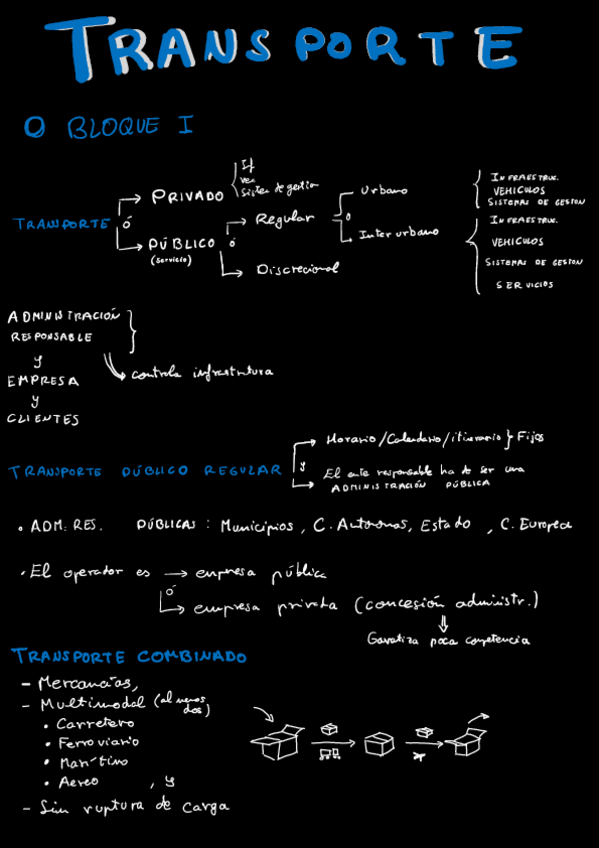 TRANSPORTE
O BLOQUE I
If
vei
Sistem de gestion
PRIVADO
TRANSPORTE
ó
PÚBLICO
(servicio)
ó
Regular
Discrecional
Urbano
o
Interurbano
INFRAESTRUC.
VEHICULOS
SISTEMAS DE GESION
INFRAESTRUC.
VEHICULOS
SISTEMAS DE GESION
SERVICIOS
ADMINISTRACIÓN
RESPONSABLE
y
EMPRESA
y
CLIENTES
controla infrastrutura
TRANSPORTE PÚBLICO REGULAR
Horario/Calendario/itinerario } Fijos
y
El ente responsable ha de ser una
ADMINISTRACIÓN PÚBLICA
• ADM. RES. PÚBLICAS: Municipios, C. Autonomas, Estado, C. Europea
• El operador es → empresa pública
ó
empresa privada (concesión administr.)
Garatiza poca competencia
TRANSPORTE COMBINADO
- Mercancías,
- Multimodal (al menos
dos)
• Carretero
• Ferroviario
• Marítimo
• Aereo , y
- Sin ruptura de carga